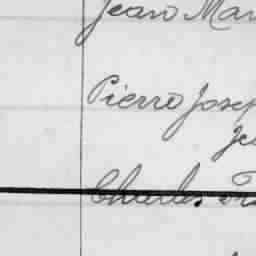 Jean Mar
Pierre Josep
Je
Charles Fr